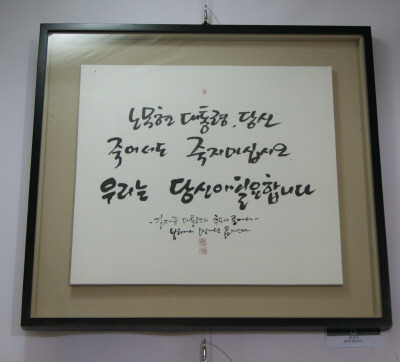 노무현 대통령, 당신
죽어서도 죽지마십시오
우리는 당신이 필요합니다
-김대중 대통령의